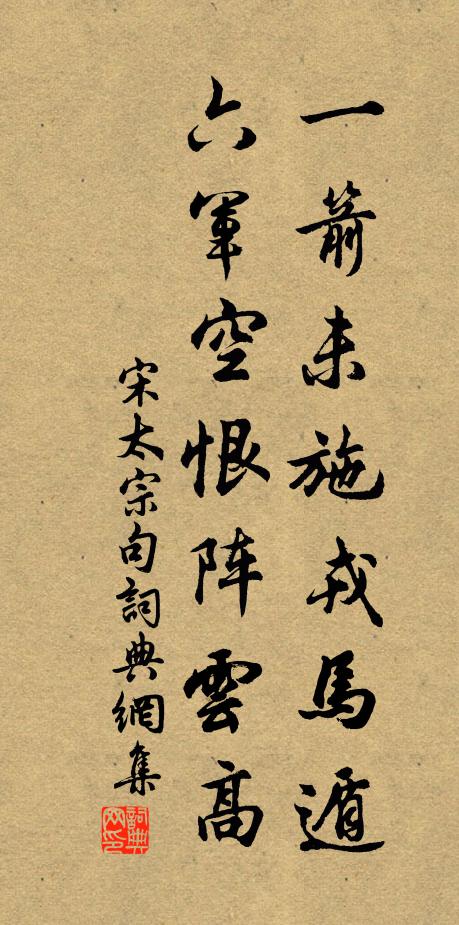 一箭未施戎馬遁
六軍空恨陣雲高
宋太宗句詞典網集
詞典网印